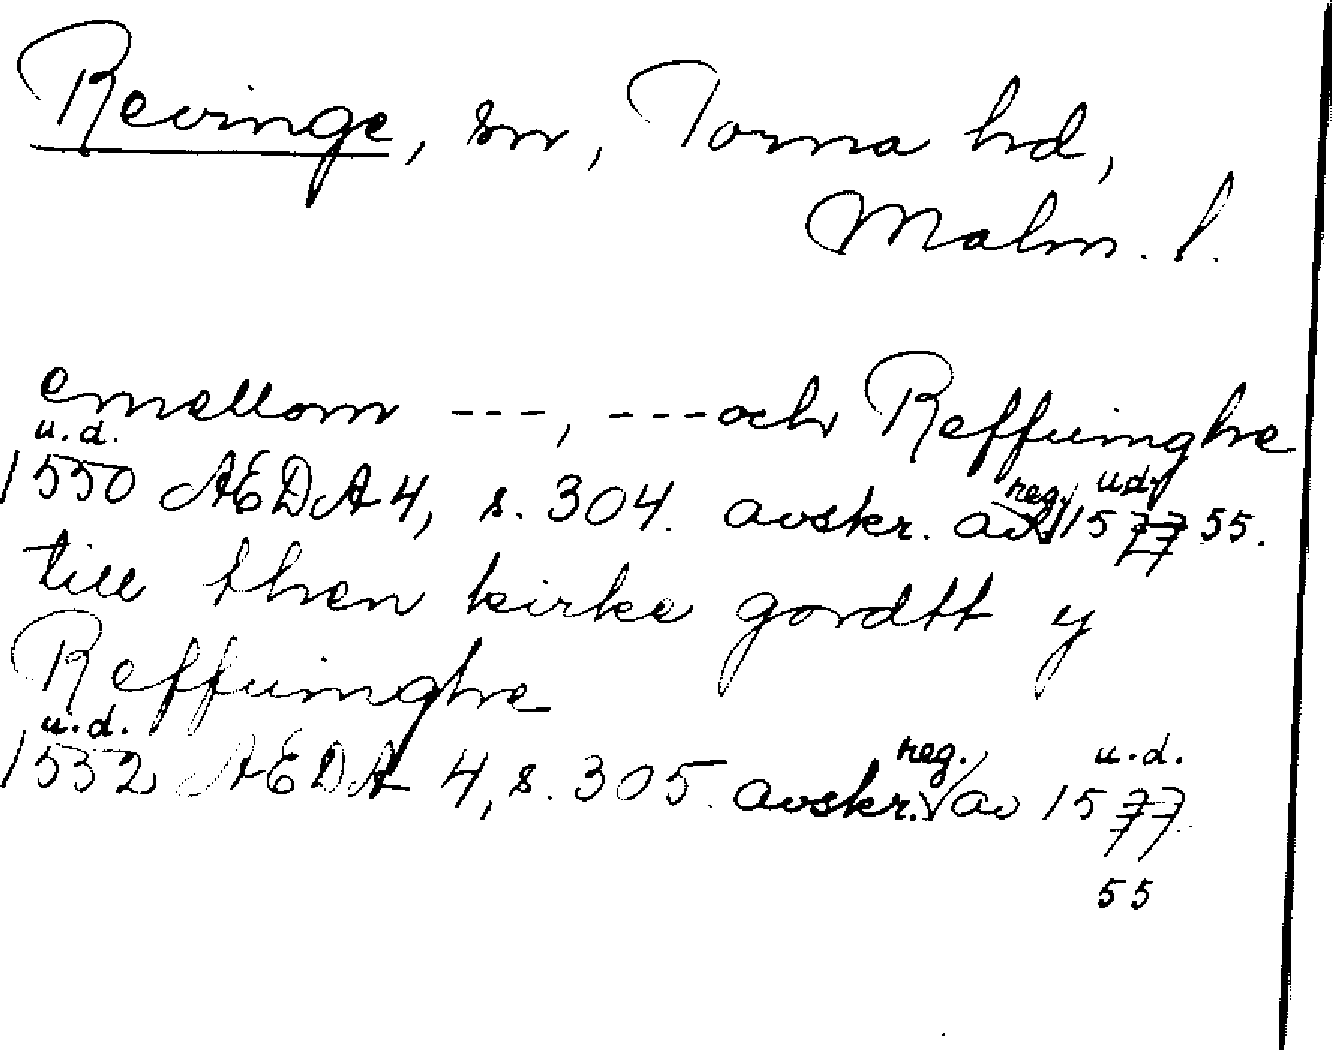 Revinge, sn, Torna hd,
Malm. l.
emellom ---, ---och Reffuinghe
u.d.
1550 AEDA 4, s. 304. avskr. av reg. u.d. 1577 55.
till then kirke gordtt y
Reffuinghe
u.d. reg. u.d.
1552 AEDA 4, s. 305. avskr. av 1577
55